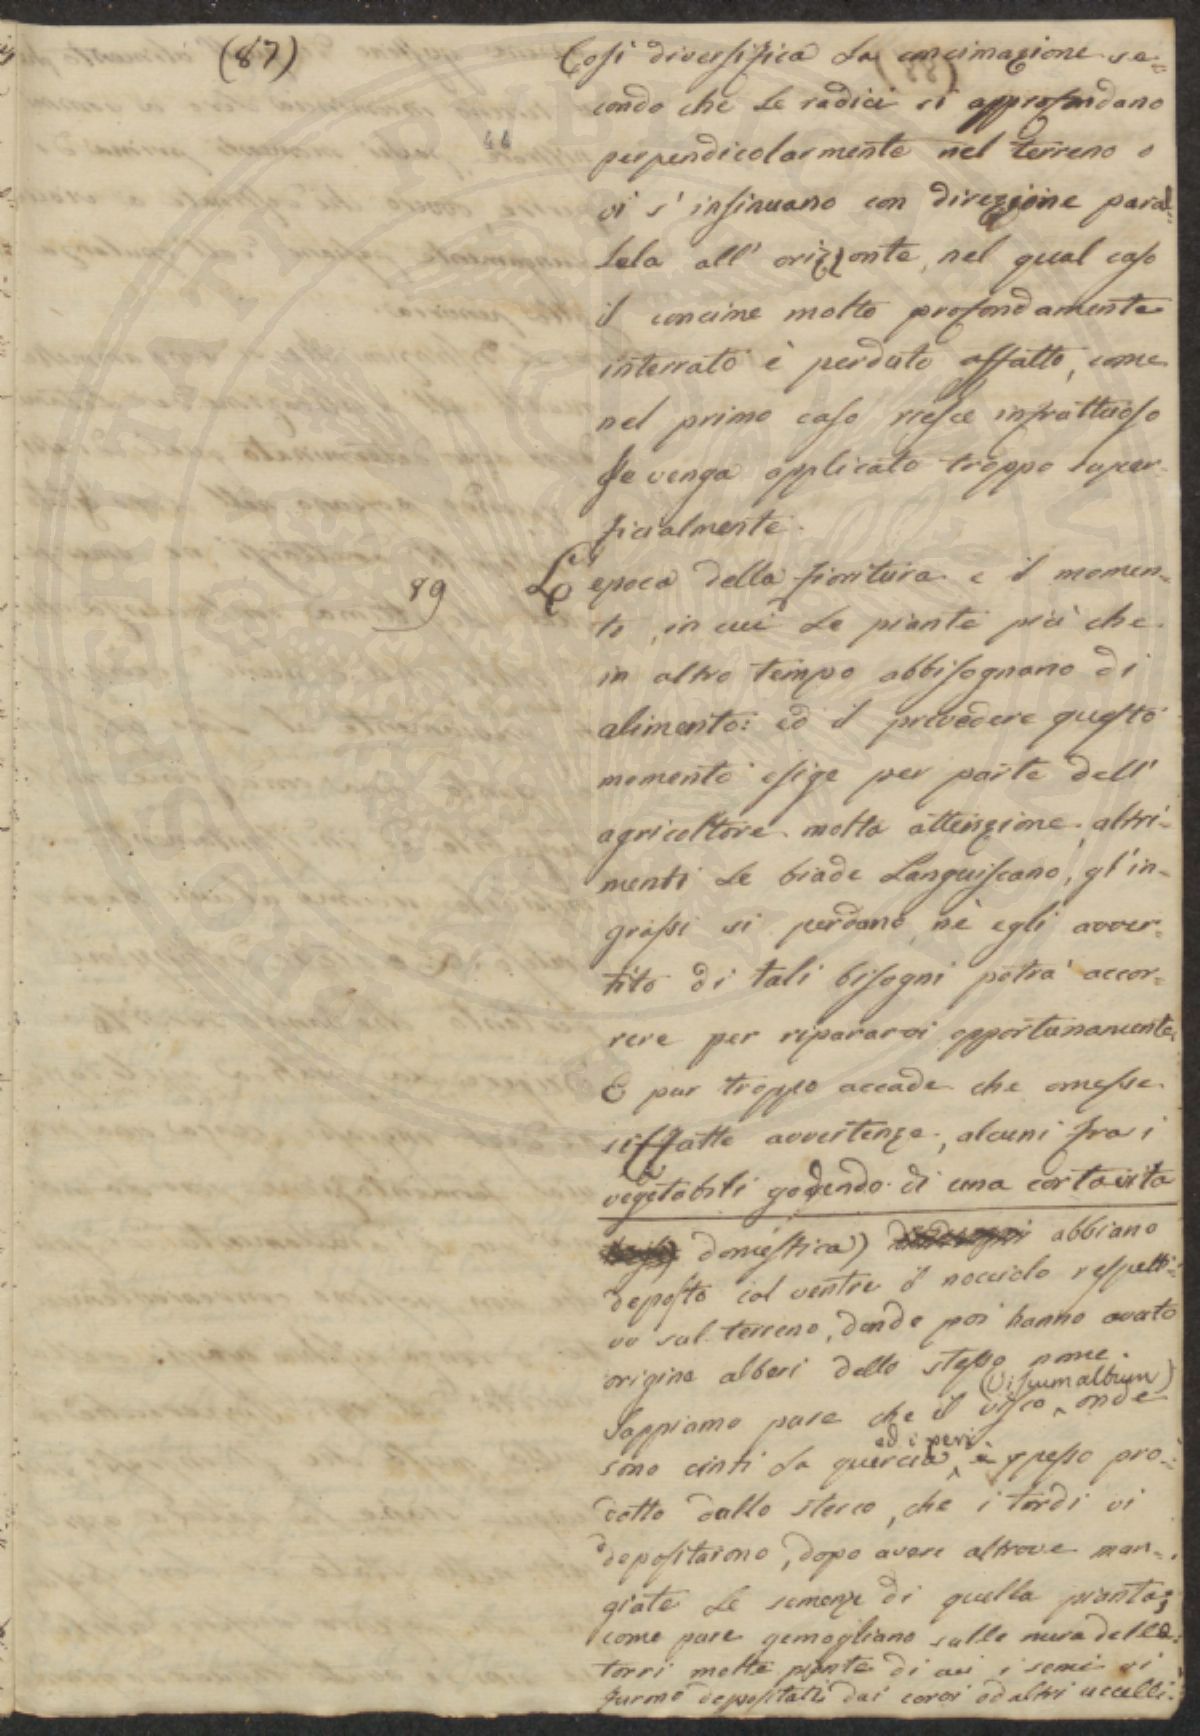 (87)
Così diversifica la concimazione se=
condo che le radici si approfondano
perpendicolarmente nel terreno o
vi s'insinuano con direzione paral=
lela all'orizzonte, nel qual caso
il concime molto profondamente
interrato è perduto affatto, come
nel primo caso riesce infruttuoso
se venga applicato troppo super=
ficialmente.
89 L'epoca della fioritura è il momen=
to, in cui le piante più che
in altro tempo abbisognano di
alimento: ed il prevedere questo
momento esige per parte dell'
agricoltore molta attenzione, altri=
menti le biade languiscano, gl'in=
grassi si perdano, nè egli avver=
tito di tali bisogni potrà accor=
rere per ripararvi opportunamente.
E pur troppo accade che omesse
siffatte avvertenze, alcuni fra i
vegetabili godendo di una corta vita
domestica) abbiano
deposto col ventre il nocciolo respetti=
vo sul terreno, donde poi hanno avuto
origine alberi dello stesso nome.
Sappiamo pure che il visco (Viscum album) onde
sono cinti la quercia ed i peri è spesso pro=
dotto dallo sterco, che i tordi vi
depositarono, dopo avere altrove man=
giate le semenze di quella pianta;
come pure gemogliano sulle mura delle
torri molte piante di cui i semi vi
furono depositati dai corvi od altri uccelli.